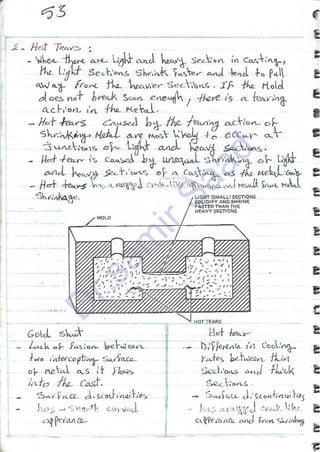 53
2 - Hot Tears :
- When there are Light and heavy Section in Casting,
the Light Sections Shrink Faster and tend to Pull
away From the heavier Sections. IF the Mold
does not break Soon enough, there is a tearing
action in the Metal.
- Hot tears Caused by the tearing action of
Shrinking Metal are most Likely to occur at
Junctions of Light and heavy Sections.
- Hot tear is Caused by unequal Shrinking of Light
and heavy Sections of a Casting as the Metal Cools
- Hot tears has a ragged crack-like apperance and result From Metal
Shrinkage.
LIGHT (SMALL) SECTIONS
SOLIDIFY AND SHRINK
FASTER THAN THE
HEAVY SECTIONS
MOLD
HOT TEARS
Gold Shut
- Lack of Fusion between
two intercepting Surface
of metal as it Flows
into the Cast.
- Surface discontinuities
- has a smooth curved
apperance
Hot tear
- Difference in Cooling
rates between thin
Sections and thick
Sections.
- Surface discontinuities
- has a ragged crack like
apperance and From Shrinkage